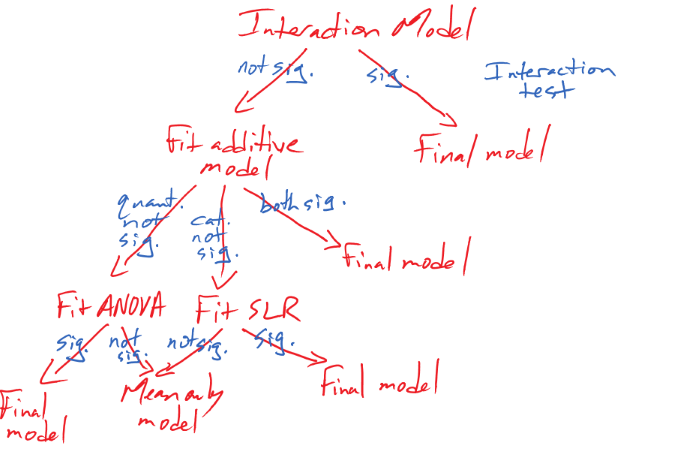 Interaction Model
not sig.
sig.
Interaction
test
Fit additive
model
Final model
quant.
not
sig.
cat.
not
sig.
both sig.
Final model
Fit ANOVA
Fit SLR
sig.
not
sig.
not sig.
sig.
Final
model
Mean only
model
Final model